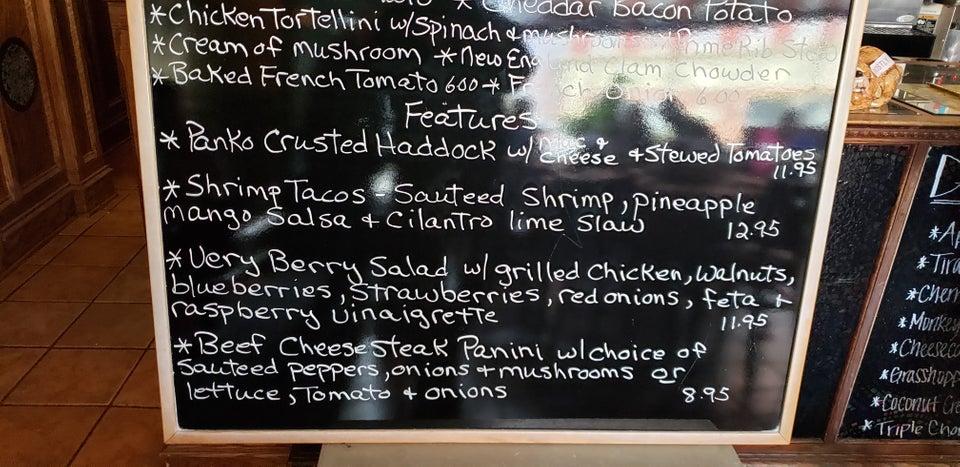 * Cheddar Bacon Potato
*Chicken Tortellini w/Spinach & mushrooms * Prime Rib Stew
*Cream of mushroom *New England Clam Chowder
*Baked French Tomato 600 * French Onion 600
Features
* Panko Crusted Haddock w/ Mac & Cheese + Stewed Tomatoes
11.95
* Shrimp Tacos - Sauteed Shrimp, pineapple
mango Salsa + Cilantro lime Slaw 12.95
*Very Berry Salad w/grilled Chicken, walnuts,
blueberries, Strawberries, red onions, feta +
raspberry vinaigrette 11.95
*Beef Cheesesteak Panini w/choice of
Sauteed peppers, onions + mushrooms or
lettuce, Tomato + onions 8.95
*Monkey
*Coconut
*Triple